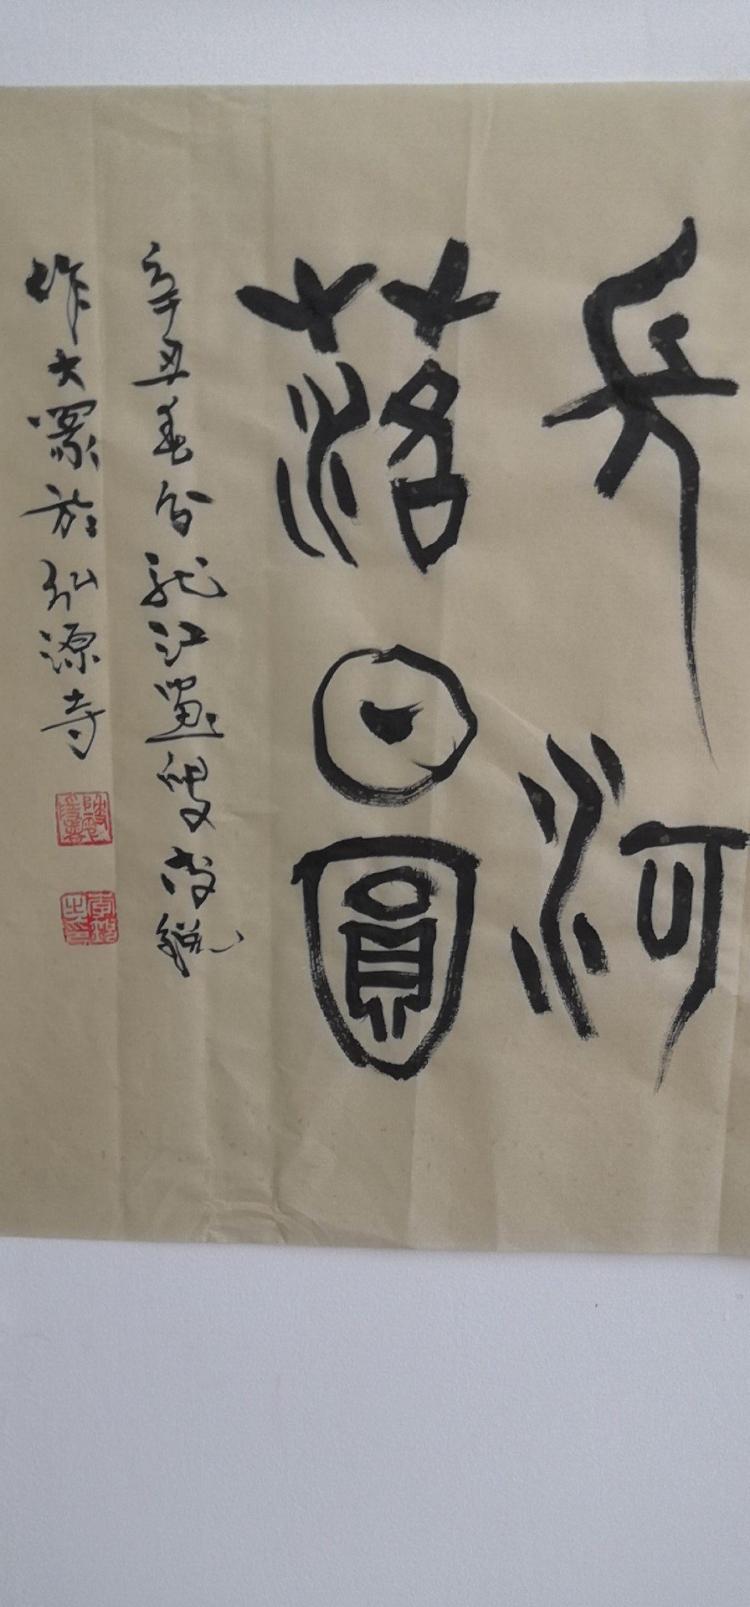 長河
落日圓
辛丑春分龍江畫叟
作大篆於弘源寺